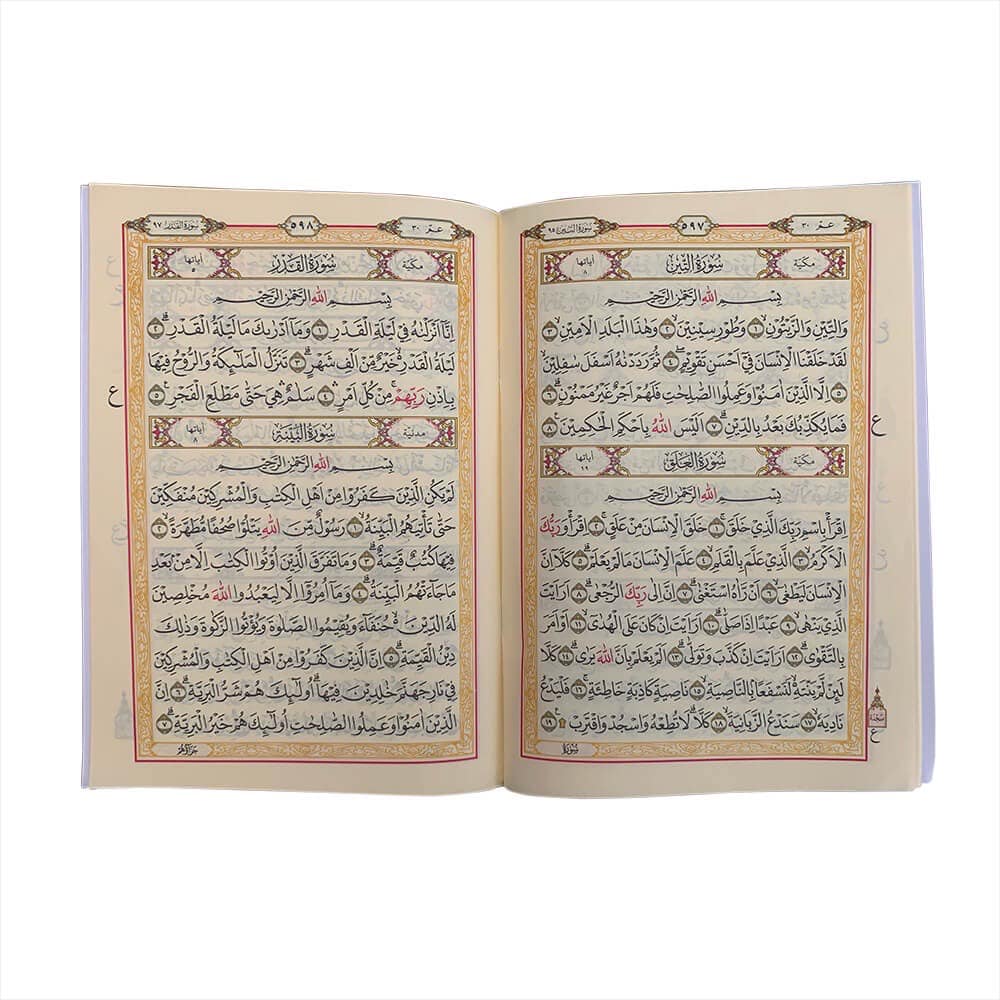 عم ٣٠
٥٩٧
سورة التين ٩٥
مكية
سُورَةُ التِّينِ
آياتها ٨
بِسْمِ اللهِ الرَّحْمٰنِ الرَّحِيمِ
وَالتِّينِ وَالزَّيْتُونِۙ ﴿١﴾ وَطُورِ سِينِينَۙ ﴿٢﴾ وَهٰذَا الْبَلَدِ الْاَمِينِۙ ﴿٣﴾
لَقَدْ خَلَقْنَا الْاِنْسَانَ فِٓي اَحْسَنِ تَقْوِيمٍۘ ﴿٤﴾ ثُمَّ رَدَدْنَاهُ اَسْفَلَ سَافِلِينَۙ
﴿٥﴾ اِلَّا الَّذِينَ اٰمَنُوا وَعَمِلُوا الصَّالِحَاتِ فَلَهُمْ اَجْرٌ غَيْرُ مَمْنُونٍۜ ﴿٦﴾
فَمَا يُكَذِّبُكَ بَعْدُ بِالدِّينِۜ ﴿٧﴾ اَلَيْسَ اللهُ بِاَحْكَمِ الْحَاكِمِينَ ﴿٨﴾
ع
مكية
سُورَةُ الْعَلَقِ
آياتها ١٩
بِسْمِ اللهِ الرَّحْمٰنِ الرَّحِيمِ
اِقْرَأْ بِاسْمِ رَبِّكَ الَّذِي خَلَقَۚ ﴿١﴾ خَلَقَ الْاِنْسَانَ مِنْ عَلَقٍۚ ﴿٢﴾ اِقْرَأْ وَرَبُّكَ
الْاَكْرَمُۙ ﴿٣﴾ اَلَّذِي عَلَّمَ بِالْقَلَمِۙ ﴿٤﴾ عَلَّمَ الْاِنْسَانَ مَا لَمْ يَعْلَمْۜ ﴿٥﴾ كَلَّٓا اِنَّ
الْاِنْسَانَ لَيَطْغٰىۙ ﴿٦﴾ اَنْ رَاٰهُ اسْتَغْنٰىۜ ﴿٧﴾ اِنَّ اِلٰى رَبِّكَ الرُّجْعٰىۜ ﴿٨﴾ اَرَاَيْتَ
الَّذِي يَنْهٰىۙ ﴿٩﴾ عَبْدًا اِذَا صَلّٰىۜ ﴿١٠﴾ اَرَاَيْتَ اِنْ كَانَ عَلَى الْهُدٰىۙ ﴿١١﴾ اَوْ اَمَرَ
بِالتَّقْوٰىۜ ﴿١٢﴾ اَرَاَيْتَ اِنْ كَذَّبَ وَتَوَلّٰىۜ ﴿١٣﴾ اَلَمْ يَعْلَمْ بِاَنَّ اللهَ يَرٰىۜ ﴿١٤﴾ كَلَّا
لَئِنْ لَمْ يَنْتَهِ لَنَسْفَعًا بِالنَّاصِيَةِۙ ﴿١٥﴾ نَاصِيَةٍ كَاذِبَةٍ خَاطِئَةٍۚ ﴿١٦﴾ فَلْيَدْعُ
نَادِيَهُۙ ﴿١٧﴾ سَنَدْعُ الزَّبَانِيَةَۙ ﴿١٨﴾ كَلَّاۜ لَا تُطِعْهُ وَاسْجُدْ وَاقْتَرِبْ ۩ ﴿١٩﴾
سجدة
ع
سورة
عم ٣٠
٥٩٨
سورة القدر ٩٧
مكية
سُورَةُ الْقَدْرِ
آياتها ٥
بِسْمِ اللهِ الرَّحْمٰنِ الرَّحِيمِ
اِنَّٓا اَنْزَلْنَاهُ فِي لَيْلَةِ الْقَدْرِۚ ﴿١﴾ وَمَٓا اَدْرٰيكَ مَا لَيْلَةُ الْقَدْرِۜ ﴿٢﴾
لَيْلَةُ الْقَدْرِ خَيْرٌ مِنْ اَلْفِ شَهْرٍۜ ﴿٣﴾ تَنَزَّلُ الْمَلٰٓئِكَةُ وَالرُّوحُ فِيهَا
بِاِذْنِ رَبِّهِمْ مِنْ كُلِّ اَمْرٍۙ ﴿٤﴾ سَلَامٌ هِيَ حَتّٰى مَطْلَعِ الْفَجْرِ ﴿٥﴾
ع
مدنية
سُورَةُ الْبَيِّنَةِ
آياتها ٨
بِسْمِ اللهِ الرَّحْمٰنِ الرَّحِيمِ
لَمْ يَكُنِ الَّذِينَ كَفَرُوا مِنْ اَهْلِ الْكِتَابِ وَالْمُشْرِكِينَ مُنْفَكِّينَ
حَتّٰى تَأْتِيَهُمُ الْبَيِّنَةُۙ ﴿١﴾ رَسُولٌ مِنَ اللهِ يَتْلُوا صُحُفًا مُطَهَّرَةًۙ ﴿٢﴾
فِيهَا كُتُبٌ قَيِّمَةٌۜ ﴿٣﴾ وَمَا تَفَرَّقَ الَّذِينَ اُوتُوا الْكِتَابَ اِلَّا مِنْ بَعْدِ
مَا جَٓاءَتْهُمُ الْبَيِّنَةُۜ ﴿٤﴾ وَمَٓا اُمِرُٓوا اِلَّا لِيَعْبُدُوا اللهَ مُخْلِصِينَ
لَهُ الدِّينَ حُنَفَٓاءَ وَيُقِيمُوا الصَّلٰوةَ وَيُؤْتُوا الزَّكٰوةَ وَذٰلِكَ
دِينُ الْقَيِّمَةِۜ ﴿٥﴾ اِنَّ الَّذِينَ كَفَرُوا مِنْ اَهْلِ الْكِتَابِ وَالْمُشْرِكِينَ
فِي نَارِ جَهَنَّمَ خَالِدِينَ فِيهَاۜ اُولٰٓئِكَ هُمْ شَرُّ الْبَرِيَّةِۜ ﴿٦﴾ اِنَّ
الَّذِينَ اٰمَنُوا وَعَمِلُوا الصَّالِحَاتِ اُولٰٓئِكَ هُمْ خَيْرُ الْبَرِيَّةِۜ ﴿٧﴾
جزاؤهم